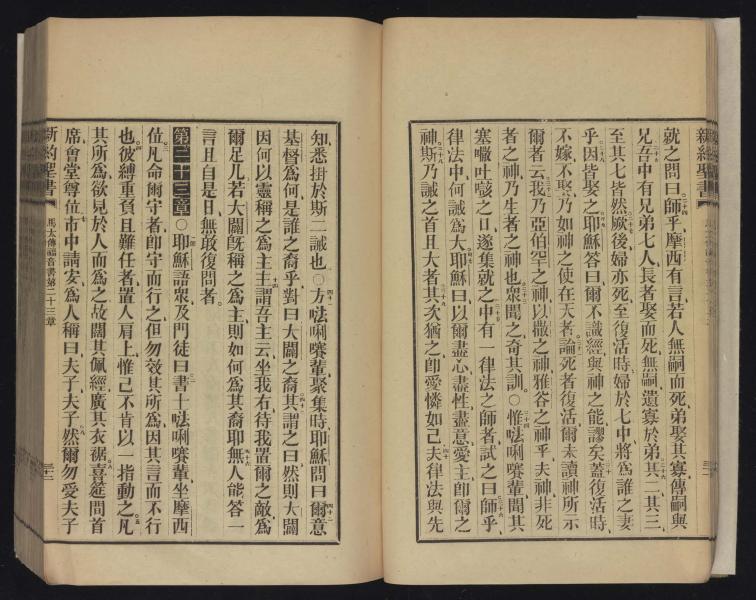 新約聖書
就之問曰師乎摩西有言若人無嗣而死弟娶其寡傳嗣與
兄吾中有兄弟七人長者娶而死無嗣遺寡於弟其二其三
至其七皆然厥後婦亦死至復活時婦於七中將爲誰之妻
乎因皆娶之耶穌答曰爾不識經與神之能謬矣蓋復活時
不嫁不娶乃如神之使在天者論死者復活爾未讀神所示
爾者云我乃亞伯罕之神以撒之神雅谷之神乎夫神非死
者之神乃生者之神也衆聞之奇其訓○惟㖕唎㘔輩聞其
塞𠼻吐㗒之口遂集就之中有一律法之師者試之曰師乎
律法中何誡爲大耶穌曰以爾盡心盡性盡意愛主卽爾之
神斯乃誡之首且大者其次猶之卽愛憐如己夫律法與先
知悉掛於斯二誡也○方㖕唎㘔輩聚集時耶穌問曰爾意
基督爲何是誰之裔乎對曰大闢之裔其謂之曰然則大闢
因何以靈稱之爲主主謂吾主云坐我右待我置爾之敵爲
爾足几若大闢旣稱之爲主則如何爲其裔耶無人能答一
言且自是日無敢復問者
第二十三章○耶穌語衆及門徒曰書士㖕唎㘔輩坐摩西
位凡命爾守者卽守而行之但勿效其所爲因其言而不行
也彼縛重負且難任者置人肩上惟己不肯以一指動之凡
其所爲欲見於人而爲之故闊其佩經廣其衣裾喜筵間首
席會堂尊位市中請安爲人稱曰夫子夫子然爾勿愛夫子
新約聖書 馬太傳福音書第二十三章